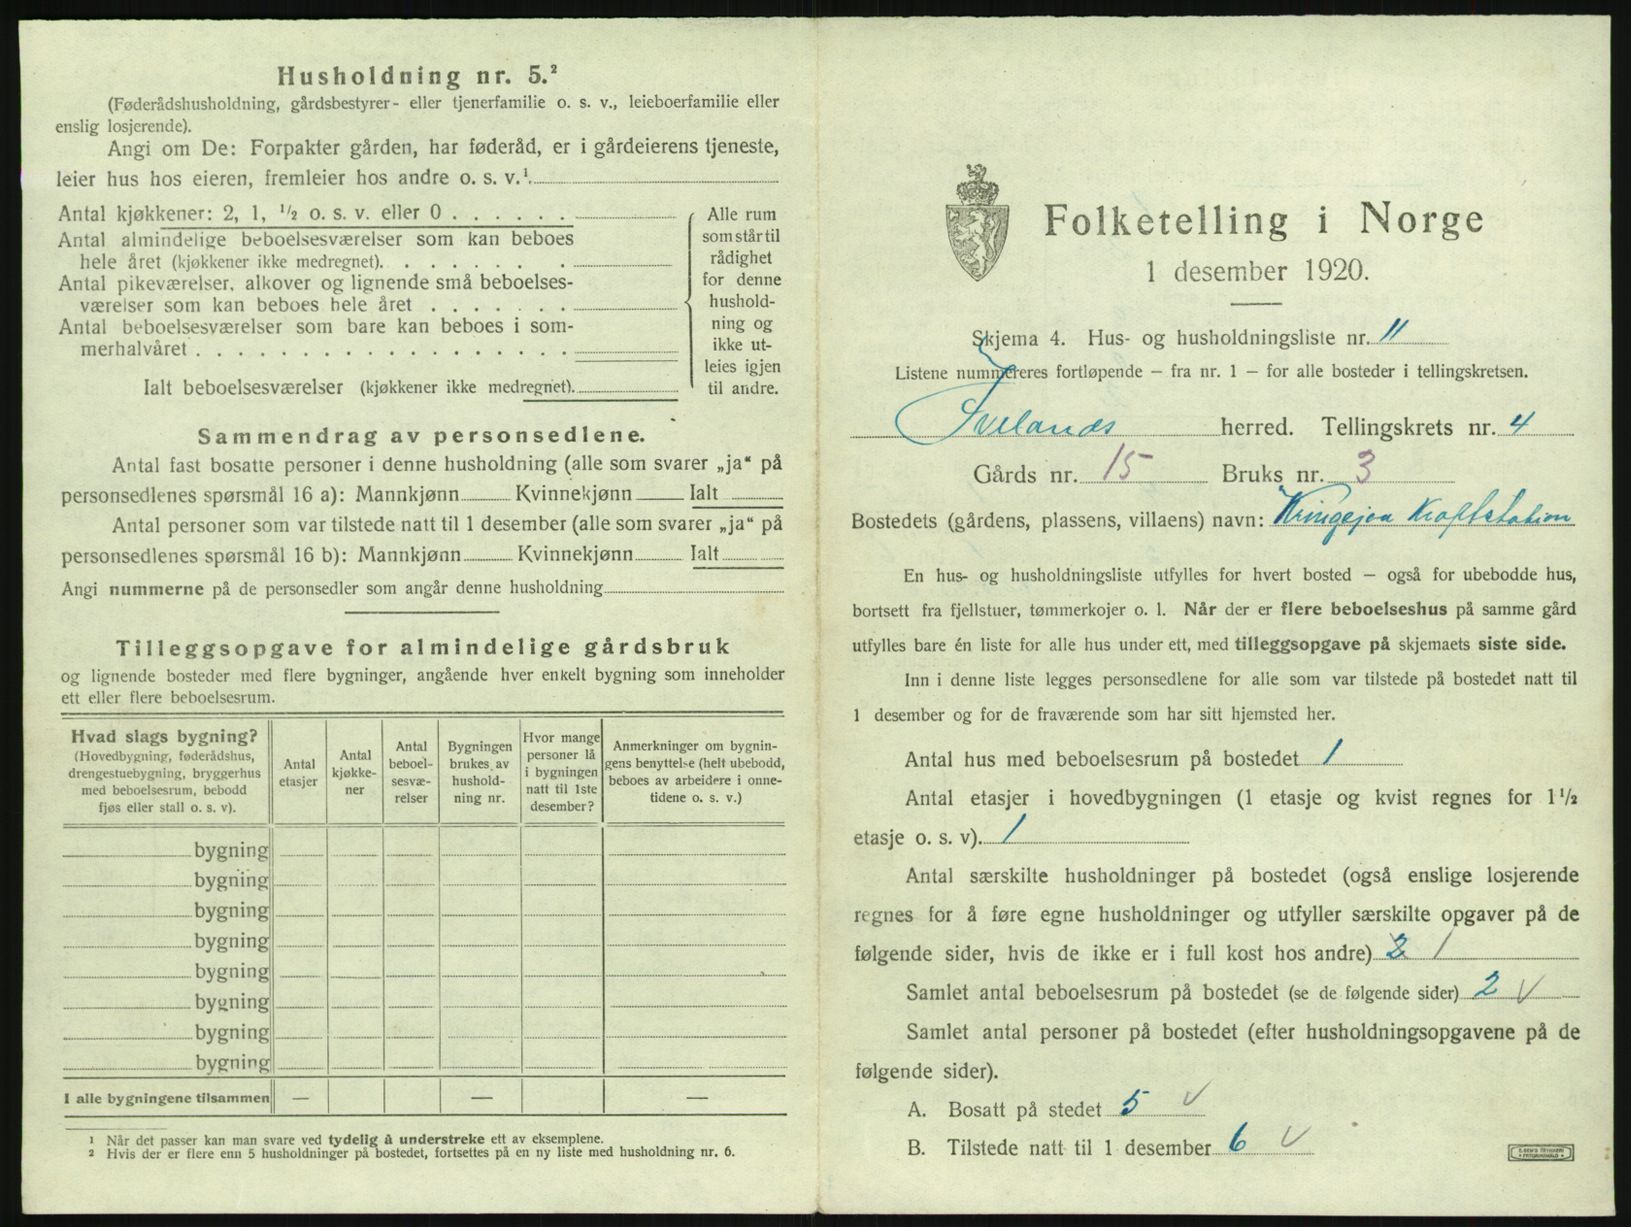 Husholdning nr. 5.²
(Føderådshusholdning, gårdsbestyrer- eller tjenerfamilie o. s. v., leieboerfamilie eller
enslig losjerende).
Angi om De: Forpakter gården, har føderåd, er i gårdeierens tjeneste,
leier hus hos eieren, fremleier hos andre o. s. v.¹
Antal kjøkkener: 2, 1, ½ o. s. v. eller 0
Antal almindelige beboelsesværelser som kan beboes
hele året (kjøkkener ikke medregnet).
Antal pikeværelser, alkover og lignende små beboelses-
værelser som kan beboes hele året
Antal beboelsesværelser som bare kan beboes i som-
merhalvåret
Ialt beboelsesværelser (kjøkkener ikke medregnet).
Alle rum
som står til
rådighet
for denne
hushold-
ning og
ikke ut-
leies igjen
til andre.
Sammendrag av personsedlene.
Antal fast bosatte personer i denne husholdning (alle som svarer „ja“ på
personsedlenes spørsmål 16 a): Mannkjønn Kvinnekjønn Ialt
Antal personer som var tilstede natt til 1 desember (alle som svarer „ja“ på
personsedlenes spørsmål 16 b): Mannkjønn Kvinnekjønn Ialt
Angi nummerne på de personsedler som angår denne husholdning
Tilleggsopgave for almindelige gårdsbruk
og lignende bosteder med flere bygninger, angående hver enkelt bygning som inneholder
ett eller flere beboelsesrum.
Hvad slags bygning?
(Hovedbygning, føderådshus,
drengestuebygning, bryggerhus
med beboelsesrum, bebodd
fjøs eller stall o. s. v).
Antal
etasjer
Antal
kjøkke-
ner
Antal
beboel-
sesvæ-
relser
Bygningen
brukes av
hushold-
ning nr.
Hvor mange
personer lå
i bygningen
natt til 1ste
desember?
Anmerkninger om bygnin-
gens benyttelse (helt ubebodd,
beboes av arbeidere i onne-
tidene o. s. v.)
bygning
bygning
bygning
bygning
bygning
bygning
bygning
bygning
I alle bygningene tilsammen — — —
¹ Når det passer kan man svare ved tydelig å understreke ett av eksemplene.
² Hvis der er flere enn 5 husholdninger på bostedet, fortsettes på en ny liste med husholdning nr. 6.
Folketelling i Norge
1 desember 1920.
Skjema 4. Hus- og husholdningsliste nr. 11
Listene nummereres fortløpende — fra nr. 1 — for alle bosteder i tellingskretsen.
Ivelands herred. Tellingskrets nr. 4
Gårds nr. 15 Bruks nr. 3
Bostedets (gårdens, plassens, villaens) navn: Kringsjaa Kraftstation
En hus- og husholdningsliste utfylles for hvert bosted — også for ubebodde hus,
bortsett fra fjellstuer, tømmerkojer o. l. Når der er flere beboelseshus på samme gård
utfylles bare én liste for alle hus under ett, med tilleggsopgave på skjemaets siste side.
Inn i denne liste legges personsedlene for alle som var tilstede på bostedet natt til
1 desember og for de fraværende som har sitt hjemsted her.
Antal hus med beboelsesrum på bostedet 1
Antal etasjer i hovedbygningen (1 etasje og kvist regnes for 1½
etasje o. s. v). 1
Antal særskilte husholdninger på bostedet (også enslige losjerende
regnes for å føre egne husholdninger og utfyller særskilte opgaver på de
følgende sider, hvis de ikke er i full kost hos andre) 2 1
Samlet antal beboelsesrum på bostedet (se de følgende sider) 2 v
Samlet antal personer på bostedet (efter husholdningsopgavene på de
følgende sider).
A. Bosatt på stedet 5 v
B. Tilstede natt til 1 desember 6 v